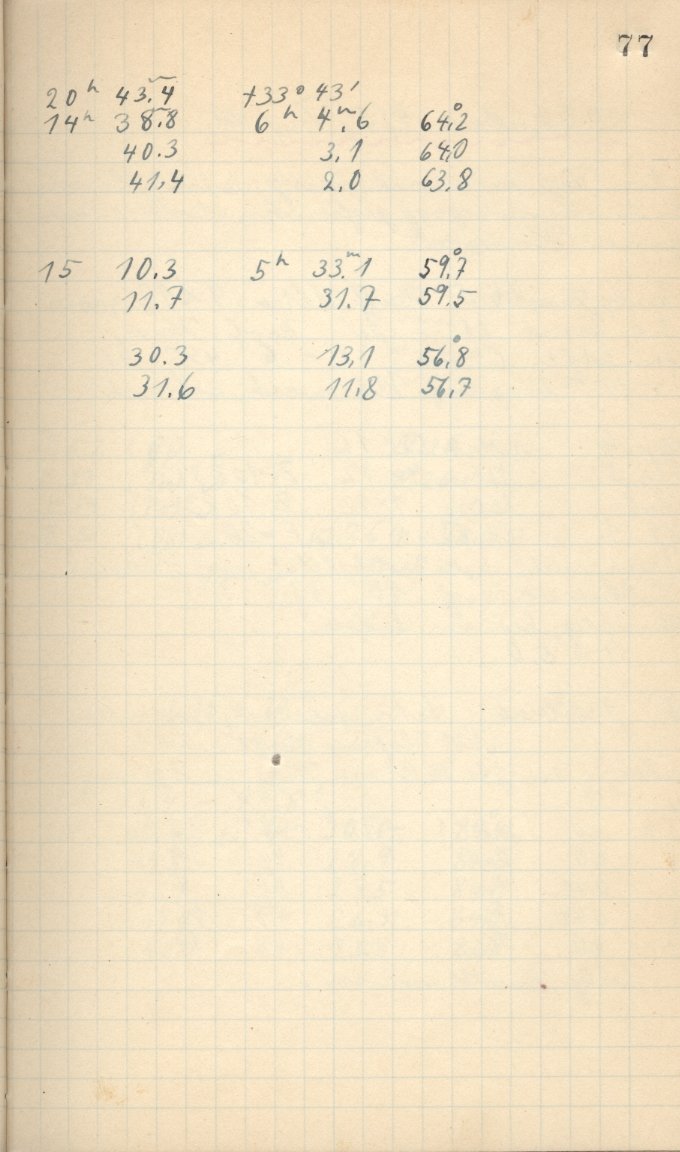 77
20ʰ 43.ᵐ4 +33° 43′
14ʰ 38.ᵐ8 6ʰ 4.ᵐ6 64.°2
40.3 3,1 64,0
41,4 2,0 63,8
15 10.3 5ʰ 33.ᵐ1 59.°7
11.7 31.7 59.5
30.3 13,1 56.°8
31.6 11,8 56,7